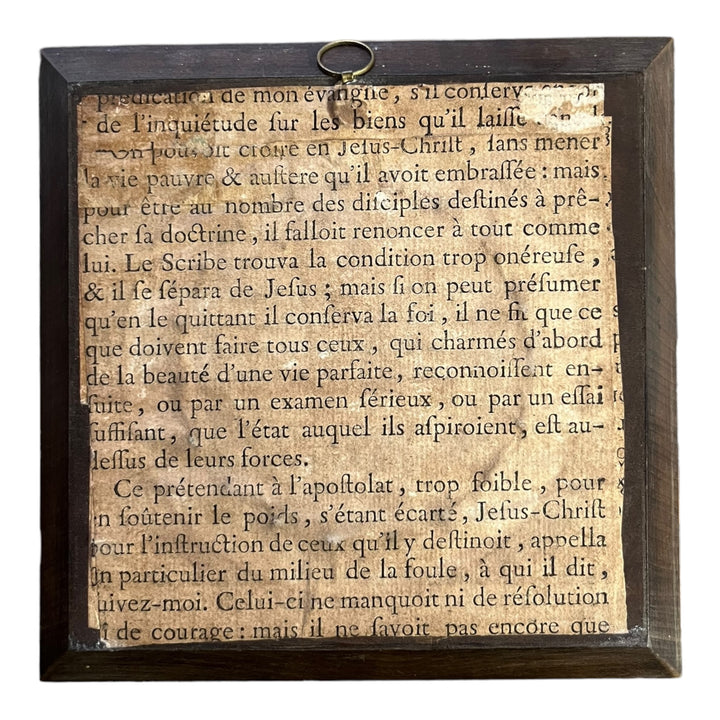 prédication de mon évangile, s'il conſerve
de l'inquiétude ſur les biens qu'il laiſſe
On pouvoit croire en Jeſus-Chriſt, ſans mener
la vie pauvre & auſtere qu'il avoit embraſſée : mais
pour être au nombre des diſciples deſtinés à prê-
cher ſa doctrine, il falloit renoncer à tout comme
lui. Le Scribe trouva la condition trop onéreuſe,
& il ſe ſépara de Jeſus ; mais ſi on peut préſumer
qu'en le quittant il conſerva la foi, il ne fit que ce
que doivent faire tous ceux, qui charmés d'abord
de la beauté d'une vie parfaite, reconnoiſſent en-
ſuite, ou par un examen ſérieux, ou par un eſſai
ſuffiſant, que l'état auquel ils aſpiroient, eſt au-
deſſus de leurs forces.
Ce prétendant à l'apoſtolat, trop foible, pour
en ſoûtenir le poids, s'étant écarté, Jeſus-Chriſt
pour l'inſtruction de ceux qu'il y deſtinoit, appella
un particulier du milieu de la foule, à qui il dit,
ſuivez-moi. Celui-ci ne manquoit ni de réſolution
ni de courage : mais il ne ſavoit pas encore que